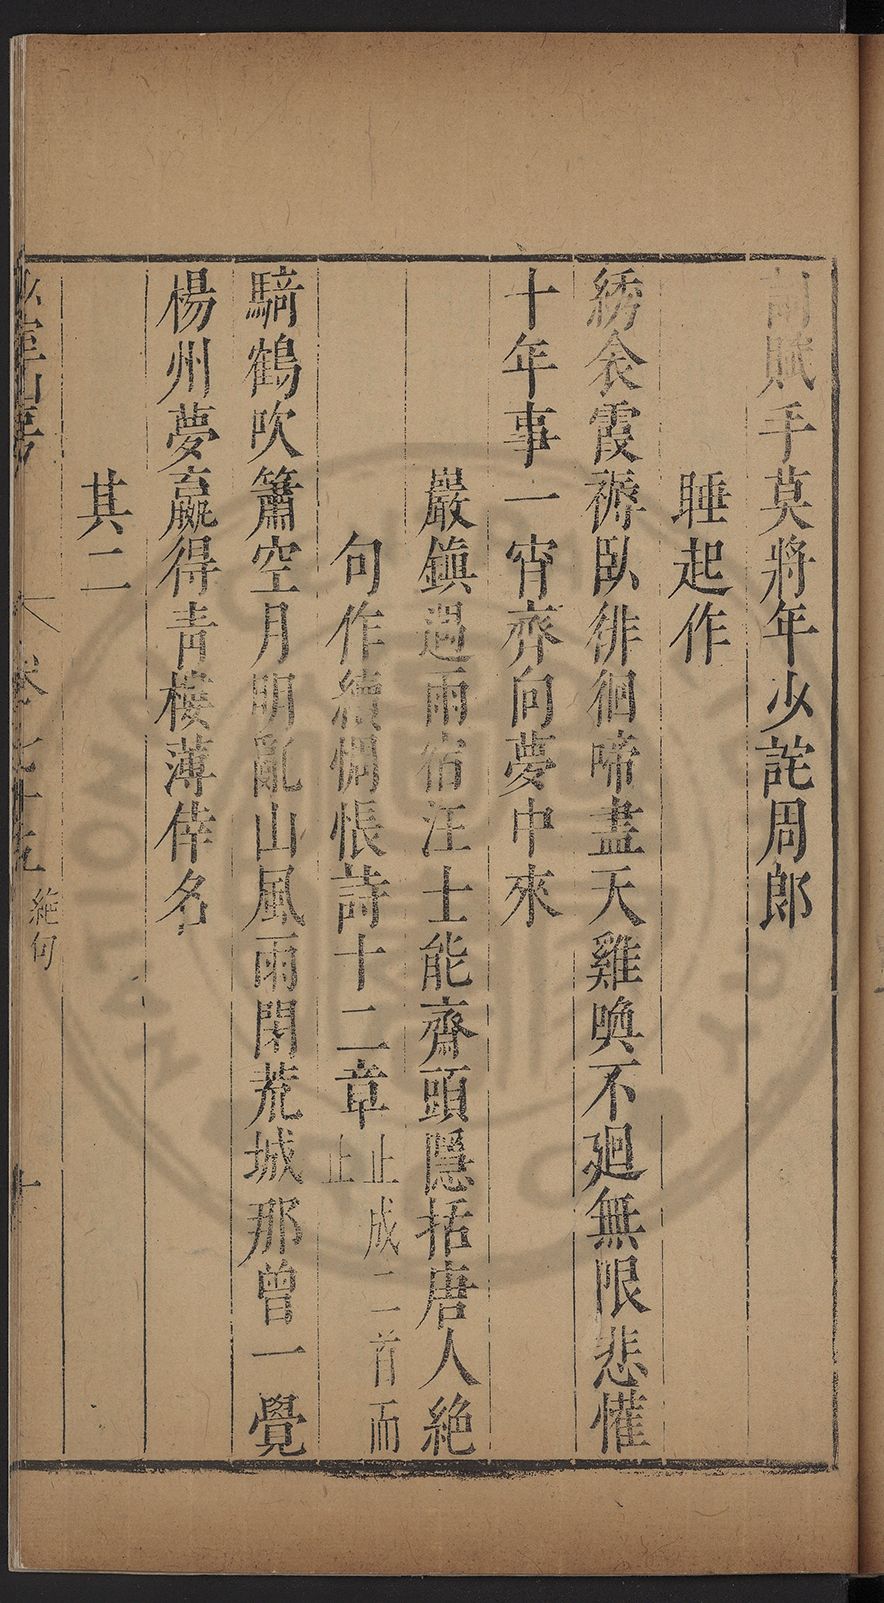 詞賦手莫將年少詫周郎
睡起作
綉衾霞褥臥徘徊啼盡天雞喚不廻無限悲懽
十年事一宵齊向夢中來
嚴鎮遇雨宿汪士能齋頭隱括唐人絶
句作續惆悵詩十二章止成二首而止
騎鶴吹簫空月明亂山風雨閉荒城那曾一覺
楊州夢贏得青樓薄倖名
其二
少室山房
卷七十五 絶句 十